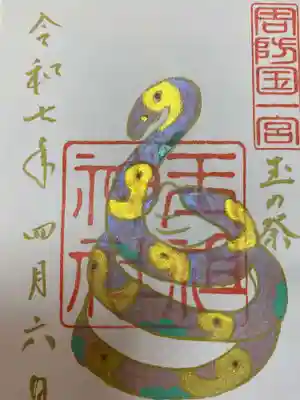 周防国一宮
玉の祭
玉祖神社
令和七年四月六日